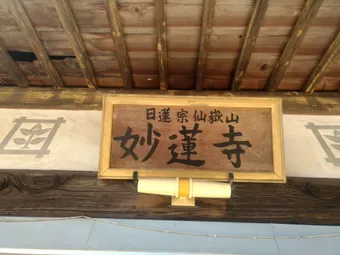 日蓮宗仙嶽山
妙蓮寺